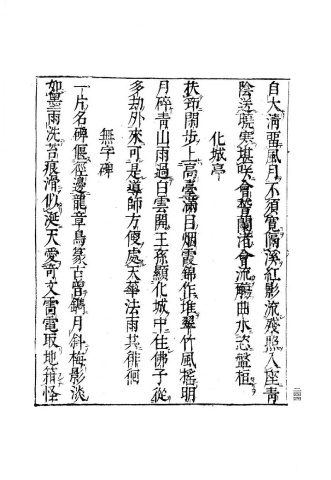 自大淸畱風月不須寬隔溪紅影流殘照入座靑
陰送曉寒堪咲會稽蘭渚會流觴曲水恣盤桓
化城亭
扶筇閒步上高臺滿目烟霞錦作堆翠竹風搖明
月碎靑山雨過白雲開王孫顯化城中住佛子從
多劫外來可是導師方便處天華法雨共徘徊
無字碑
一片名碑偃徑邊龍章鳥篆古曾鐫月斜梅影淡
如墨雨洗苔痕滑似涎天愛奇文雷電取地藏怪